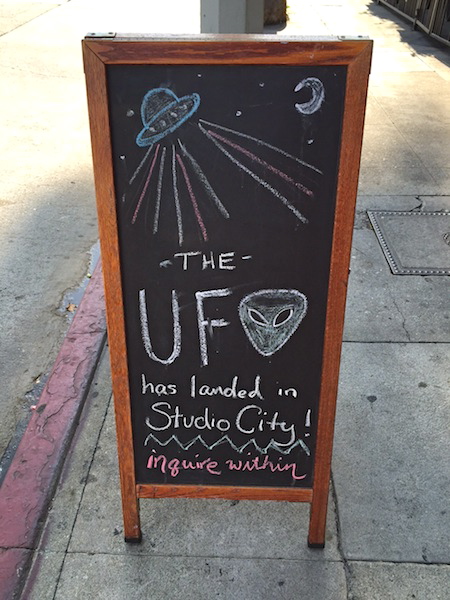 -THE-
UFO
has landed in
Studio City!
inquire within